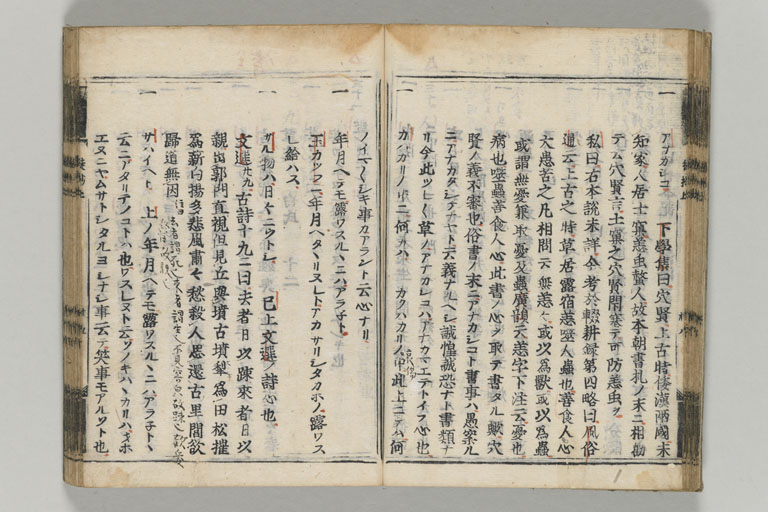 一 アナカシコ 下學集曰穴賢上古時倭漢兩國未
知家人居土窟恙虫螫人故本朝書札ノ末ニ相勸
テ云穴賢言土窟之穴賢閇塞テ可防恙虫ヲ
私曰右本説未詳今考於輟耕録第四略曰風俗
通云上古之時草居露宿恙噬人蟲也善食人心
大患苦之凡相問云無恙乎或以為獸或以為蟲
或謂無憂兼取憂及蟲廣韻云恙字下注云憂也
病也噬蟲善食人心此書ノ心ヲ取テ書タル歟穴
賢ノ義不審也俗書ノ末ニアナカシコト書事ハ愚案ル
ニアナカタシケナヤト云義ナルヘシ誠惶誠恐ナト書類ナ
リ今此ツレ〱草ノアナカシコハアナカマエテトイフ心也
一 カハカリノ中ニ何カハ カクハカリノ中此上ニテハ何
ノイマ〱シキ事カアラント云心ナリ
一 年月ヘテモ露ワスルヽニハアラ子ト
玉カツラ年月ヘタヽリヌレトアカサリシタカホノ露ワス
レ給ハス
一 サル物ハ日々ニウトシ 已上文選ノ詩心也
文選廿九古詩十九ニ曰去者日以踈來者日以
親出郭門直視但見丘與墳古墳犂為田松摧
為薪白揚多悲風肅々愁殺人思還古里閭欲
歸道無因
一 サハイヘト 上ノ年月ヘテモ露ワスルヽニハアラ子トヽ
云ニアタリテノコトハ也ワスレヌト云ツノキハハカリハヲホ
エヌニヤムサトシタルヨシナシ事云テ笑事モアルソト也